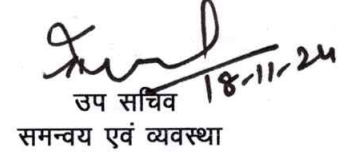 18-11-24
उप सचिव
समन्वय एवं व्यवस्था